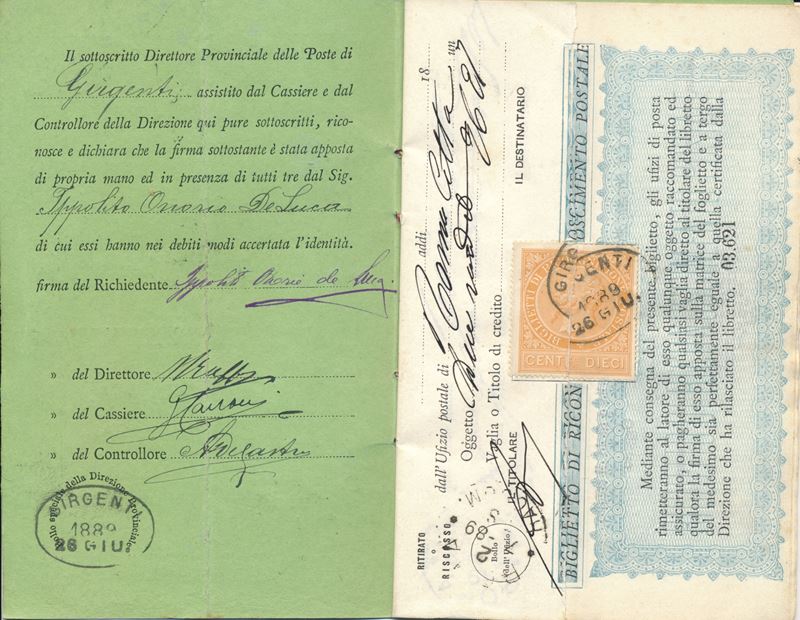 Il sottoscritto Direttore Provinciale delle Poste di
Girgenti, assistito dal Cassiere e dal
Controllore della Direzione qui pure sottoscritti, rico-
nosce e dichiara che la firma sottostante è stata apposta
di propria mano ed in presenza di tutti tre dal Sig.
Ippolito Onorio De Luca
di cui essi hanno nei debiti modi accertata l'identità.
firma del Richiedente Ippolito Onorio de Luca
» del Direttore
» del Cassiere
» del Controllore
Bollo speciale della Direzione Provinciale
GIRGENTI
1889
26 GIU.
RITIRATO
RISCOSSO
dall'Ufizio postale di Roma addì 18
Oggetto un
Vaglia o Titolo di credito
IL TITOLARE
IL DESTINATARIO
Bollo
dell'Ufizio
BIGLIETTI DI RI
CENT. DIECI
GIRGENTI
1889
26 GIU.
BIGLIETTO DI RICONOSCIMENTO POSTALE
Mediante consegna del presente biglietto, gli ufizi di posta
rimetteranno al latore di esso qualunque oggetto raccomandato ed
assicurato, o pagheranno qualsiasi vaglia diretto al titolare del libretto
qualora la firma di esso apposta sulla matrice del foglietto e a tergo
del medesimo sia perfettamente eguale a quella certificata dalla
Direzione che ha rilasciato il libretto. 03,621